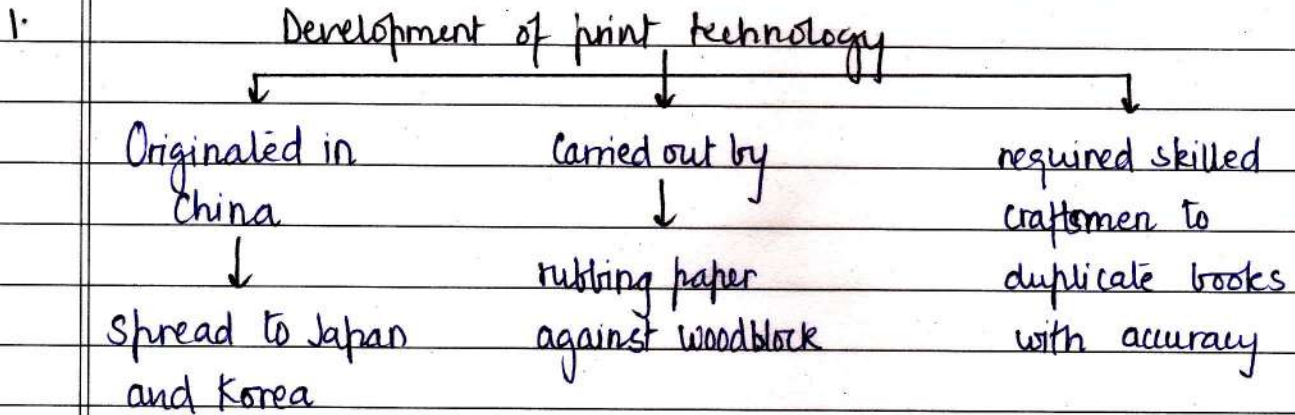 1. Development of print technology
Originated in China
Spread to Japan and Korea
Carried out by
rubbing paper against woodblock
required skilled craftsmen to duplicate books with accuracy